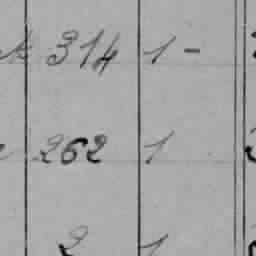 314 1 -
262 1
2 1